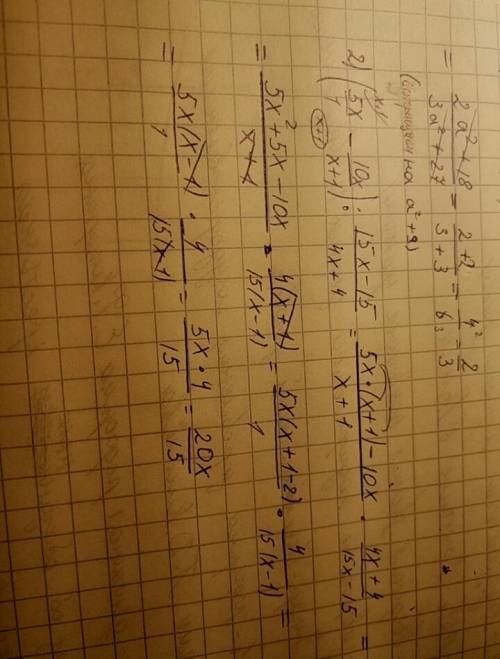 = (2a² + 18)/(3a² + 27) = (2 + 2)/(3 + 3) = 4²/6₃ = 2/3
на a² + 9)
2) (5x/1 - 10x/(x + 1)) : (15x - 15)/(4x + 4) = (5x · (x + 1) - 10x)/(x + 1) · (4x + 4)/(15x - 15) =
= (5x² + 5x - 10x)/(x + 1) · 4(x + 1)/15(x - 1) = 5x(x + 1 - 2)/1 · 4/15(x - 1) =
= 5x(x - 1)/1 · 4/15(x - 1) = 5x · 4/15 = 20x/15